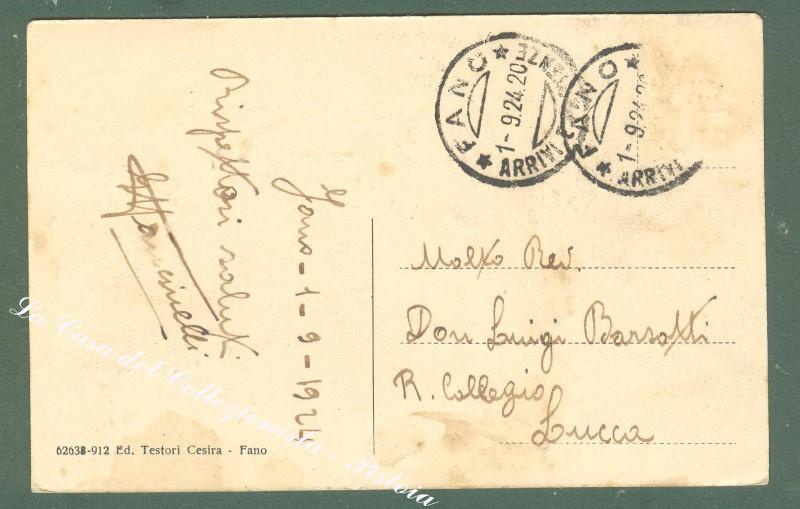 FANO ARRIVI PARTENZE
1-9.24.20
FANO
1-9.24.20
ARRIVI
Rispettosi saluti
Fano - 1 - 9 - 1924
Molto Rev.
Don Luigi Barsotti
R. Collegio
Lucca
62638-912 Ed. Testori Cesira - Fano
La Casa del Collezionista - Pistoia